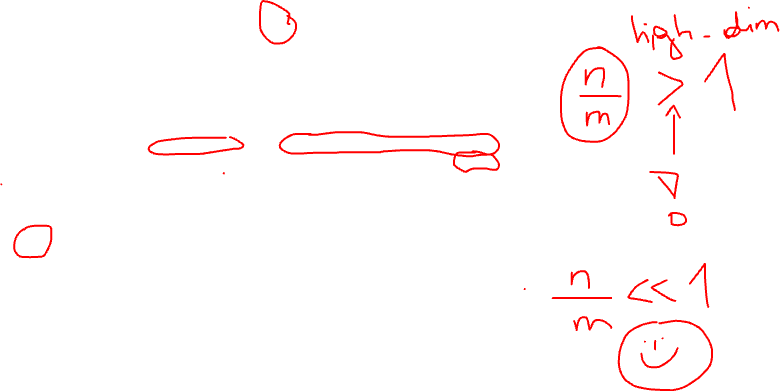 high-dim
n/m > 1
n/m << 1